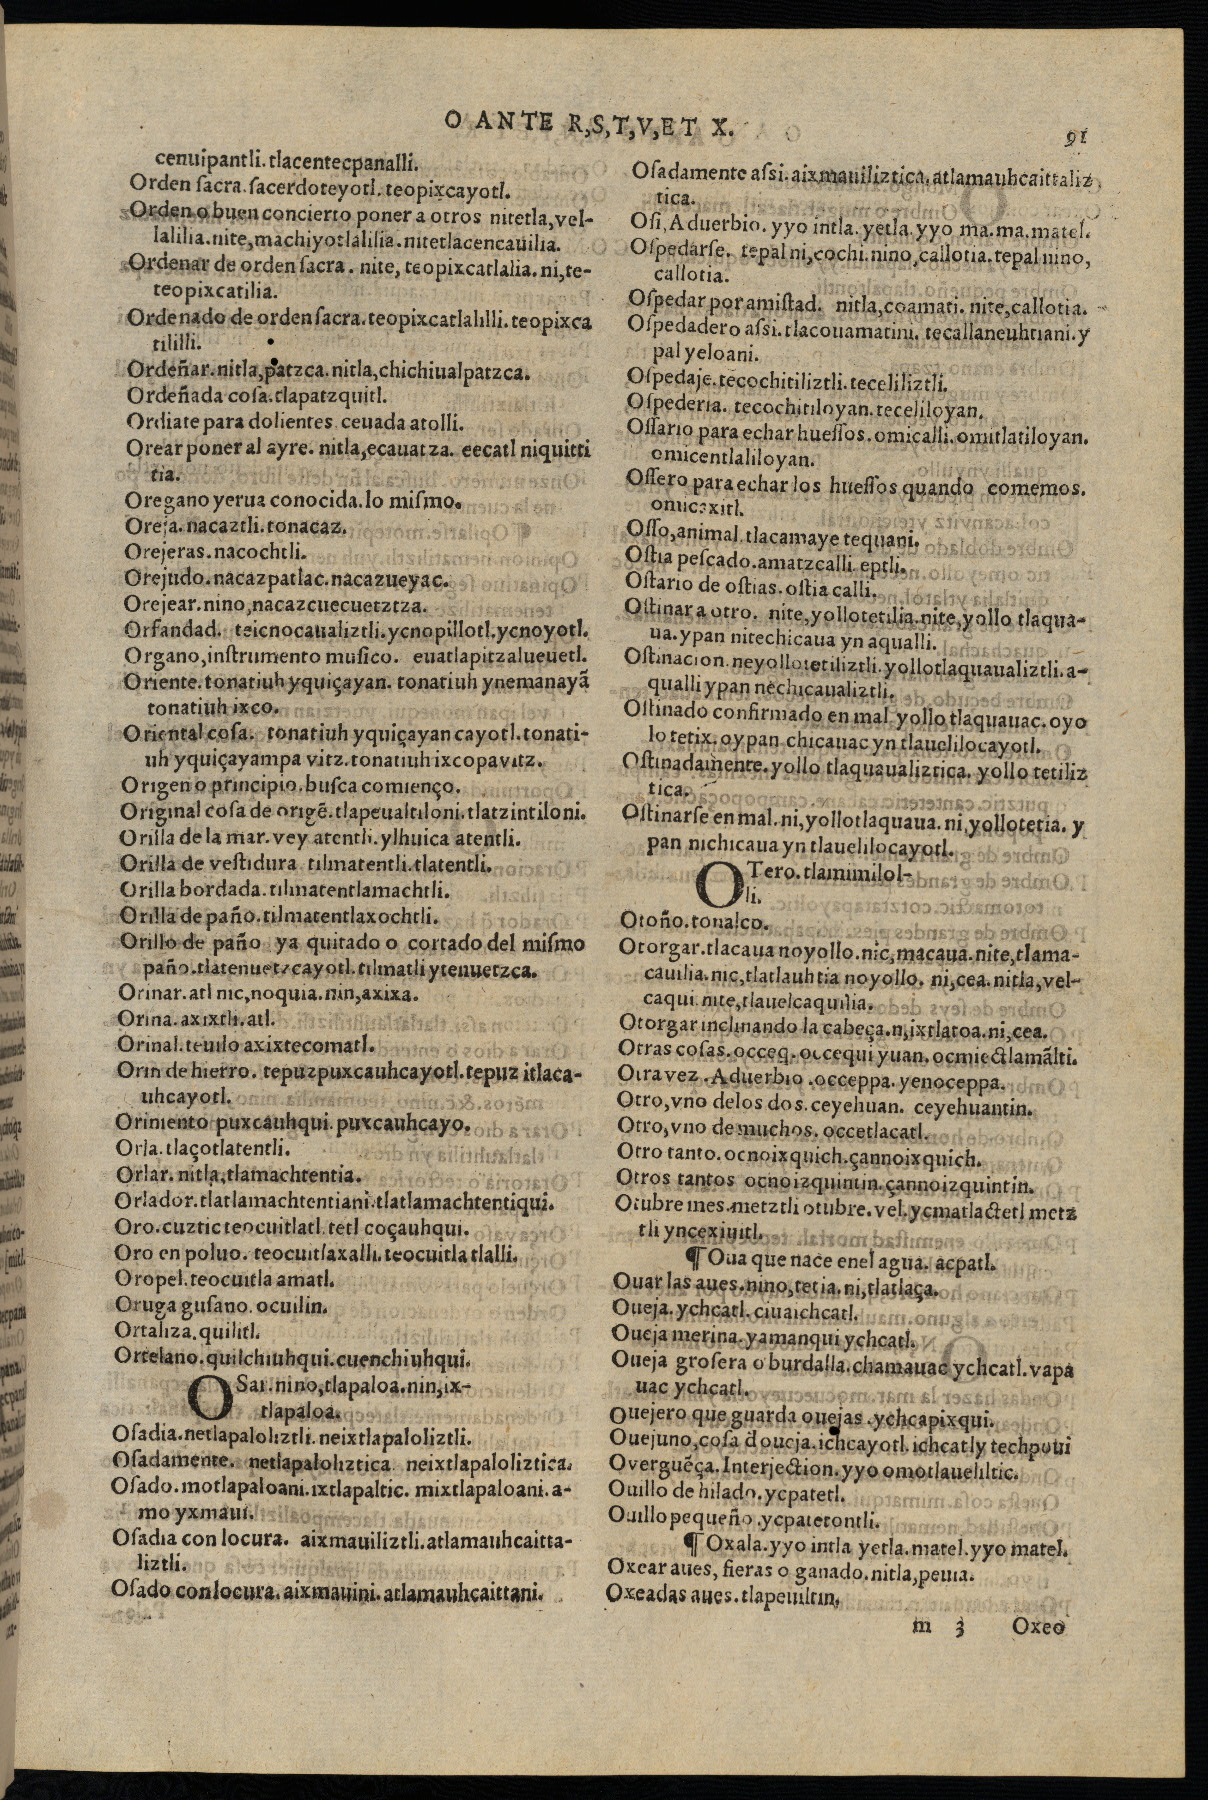 O ANTE R,S,T,V,ET X.
91
cenuipantli.tlacentecpanalli.
Orden ſacra.ſacerdoteyotl.teopixcayotl.
Orden o buen concierto poner a otros nitetla,vel-
lalilia.nite,machiyotlalilia.nitetlacencauilia.
Ordenar de orden ſacra. nite, teopixcatlalia.ni,te-
teopixcatilia.
Ordenado de orden ſacra.teopixcatlalilli.teopixca
tililli.
Ordeñar.nitla,patzca.nitla,chichiualpatzca.
Ordeñada coſa.tlapatzquitl.
Ordiate para dolientes ceuada atolli.
Orear poner al ayre. nitla,ecauatza. eecatl niquitti
tia.
Oregano yerua conocida.lo miſmo.
Oreja.nacaztli.tonacaz.
Orejeras.nacochtli.
Orejudo.nacazpatlac.nacazueyac.
Orejear.nino,nacazcuecuetztza.
Orfandad. teicnocaualiztli.ycnopillotl.ycnoyotl.
Organo,inſtrumento muſico. euatlapitzalueuetl.
Oriente.tonatiuh yquiçayan. tonatiuh ynemanayã
tonatiuh ixco.
Oriental coſa. tonatiuh yquiçayan cayotl.tonati-
uh yquiçayampa vitz.tonatiuh ixcopavitz.
Origen o principio.buſca comienço.
Original coſa de origẽ.tlapeualtiloni.tlatzintiloni.
Orilla de la mar.vey atentli.ylhuica atentli.
Orilla de veſtidura tilmatentli.tlatentli.
Orilla bordada.tilmatentlamachtli.
Orilla de paño.tilmatentlaxochtli.
Orillo de paño ya quitado o cortado del miſmo
paño.tlatenuetzcayotl.tilmatli ytenuetzca.
Orinar.atl nic,noquia.nin,axixa.
Orina.axixtli.atl.
Orinal.teuilo axixtecomatl.
Orin de hierro. tepuzpuxcauhcayotl.tepuz itlaca-
uhcayotl.
Oriniento puxcauhqui.puxcauhcayo.
Orla.tlaçotlatentli.
Orlar.nitla,tlamachtentia.
Orlador.tlatlamachtentiani.tlatlamachtentiqui.
Oro.cuztic teocuitlatl.tetl coçauhqui.
Oro en poluo. teocuitlaxalli.teocuitla tlalli.
Oropel.teocuitla amatl.
Oruga guſano.ocuilin.
Ortaliza.quilitl.
Ortelano.quilchiuhqui.cuenchiuhqui.
OSar.nino,tlapaloa.nin,ix-
tlapaloa.
Oſadia.netlapaloliztli.neixtlapaloliztli.
Oſadamente. netlapaloliztica. neixtlapaloliztica.
Oſado.motlapaloani.ixtlapaltic. mixtlapaloani.a-
mo yxmaui.
Oſadia con locura. aixmauiliztli.atlamauhcaitta-
liztli.
Oſado con locura.aixmauini.atlamauhcaittani.
Oſadamente aſsi.aixmauiliztica.atlamauhcaittaliz
tica.
Oſi.Aduerbio.yyo intla.yetla.yyo ma.ma.matel.
Oſpedarſe. tepal ni,cochi.nino,callotia.tepal nino,
callotia.
Oſpedar por amiſtad. nitla,coamati.nite,callotia.
Oſpedadero aſsi.tlacouamatini. tecallaneuhtiani.y
pal yeloani.
Oſpedaje.tecochitiliztli.teceliliztli.
Oſpederia. tecochitiloyan.teceliloyan.
Oſſario para echar hueſſos.omicalli.omitlatiloyan.
omicentlaliloyan.
Oſſero para echar los hueſſos quando comemos.
omicaxitl.
Oſſo,animal.tlacamaye tequani.
Oſtia peſcado.amatzcalli.eptli.
Oſtario de oſtias.oſtia calli.
Oſtinar a otro. nite,yollotetilia.nite,yollo tlaqua-
ua.ypan nitechicaua yn aqualli.
Oſtinacion.neyollotetiliztli.yollotlaquaualiztli.a-
qualli ypan nechicaualiztli.
Oſtinado confirmado en mal yollo tlaquauac.oyo
lotetix.oypan chicauac yn tlauelilocayotl.
Oſtinadamente.yollo tlaquaualiztica. yollo tetiliz
tica.
Oſtinarſe en mal.ni,yollotlaquaua.ni,yollotetia. y
pan nichicaua yn tlauelilocayotl.
OTero.tlamimilol-
li.
Otoño.tonalco.
Otorgar.tlacaua noyollo.nic,macaua.nite,tlama-
cauilia.nic,tlatlauhtia noyollo. ni,cea.nitla,vel-
caqui.nite,tlauelcaquilia.
Otorgar inclinando la cabeça.n,ixtlatoa.ni,cea.
Otras coſas.occeq.occequi yuan.ocmiectlamãtli.
Otra vez.Aduerbio.occeppa.yenoceppa.
Otro,vno delos dos.ceyehuan. ceyehuantin.
Otro,vno de muchos.occetlacatl.
Otro tanto.ocnoixquich.çannoixquich.
Otros tantos ocnoizquintin.çannoizquintin.
Otubre mes.metztli otubre.vel.ycmatlactetl metz
tli yncexiuitl.
¶ Oua que nace enel agua. acpatl.
Ouar las aues.nino,tetia.ni,tlatlaça.
Oueja.ychcatl.ciuaichcatl.
Oueja merina.yamanqui ychcatl.
Oueja groſera o burdalla.chamauac ychcatl.vapa
uac ychcatl.
Ouejero que guarda ouejas.ychcapixqui.
Ouejuno,coſa d oueja.ichcayotl.ichcatl ytechpoui
Overguẽça.Interjection.yyo omotlaueliltic.
Ouillo de hilado.ycpatetl.
Ouillo pequeño.ycpatetontli.
¶ Oxala.yyo intla yetla.matel.yyo matel.
Oxear aues, fieras o ganado.nitla,peuia.
Oxeadas aues.tlapeuiltin.
m 3 Oxeo